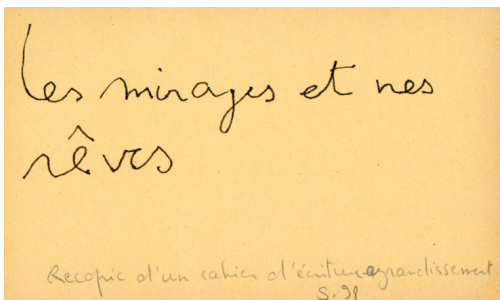 Les mirages et nes
rêves
Recopie d'un cahier d'écriture agrandissement
S. 98